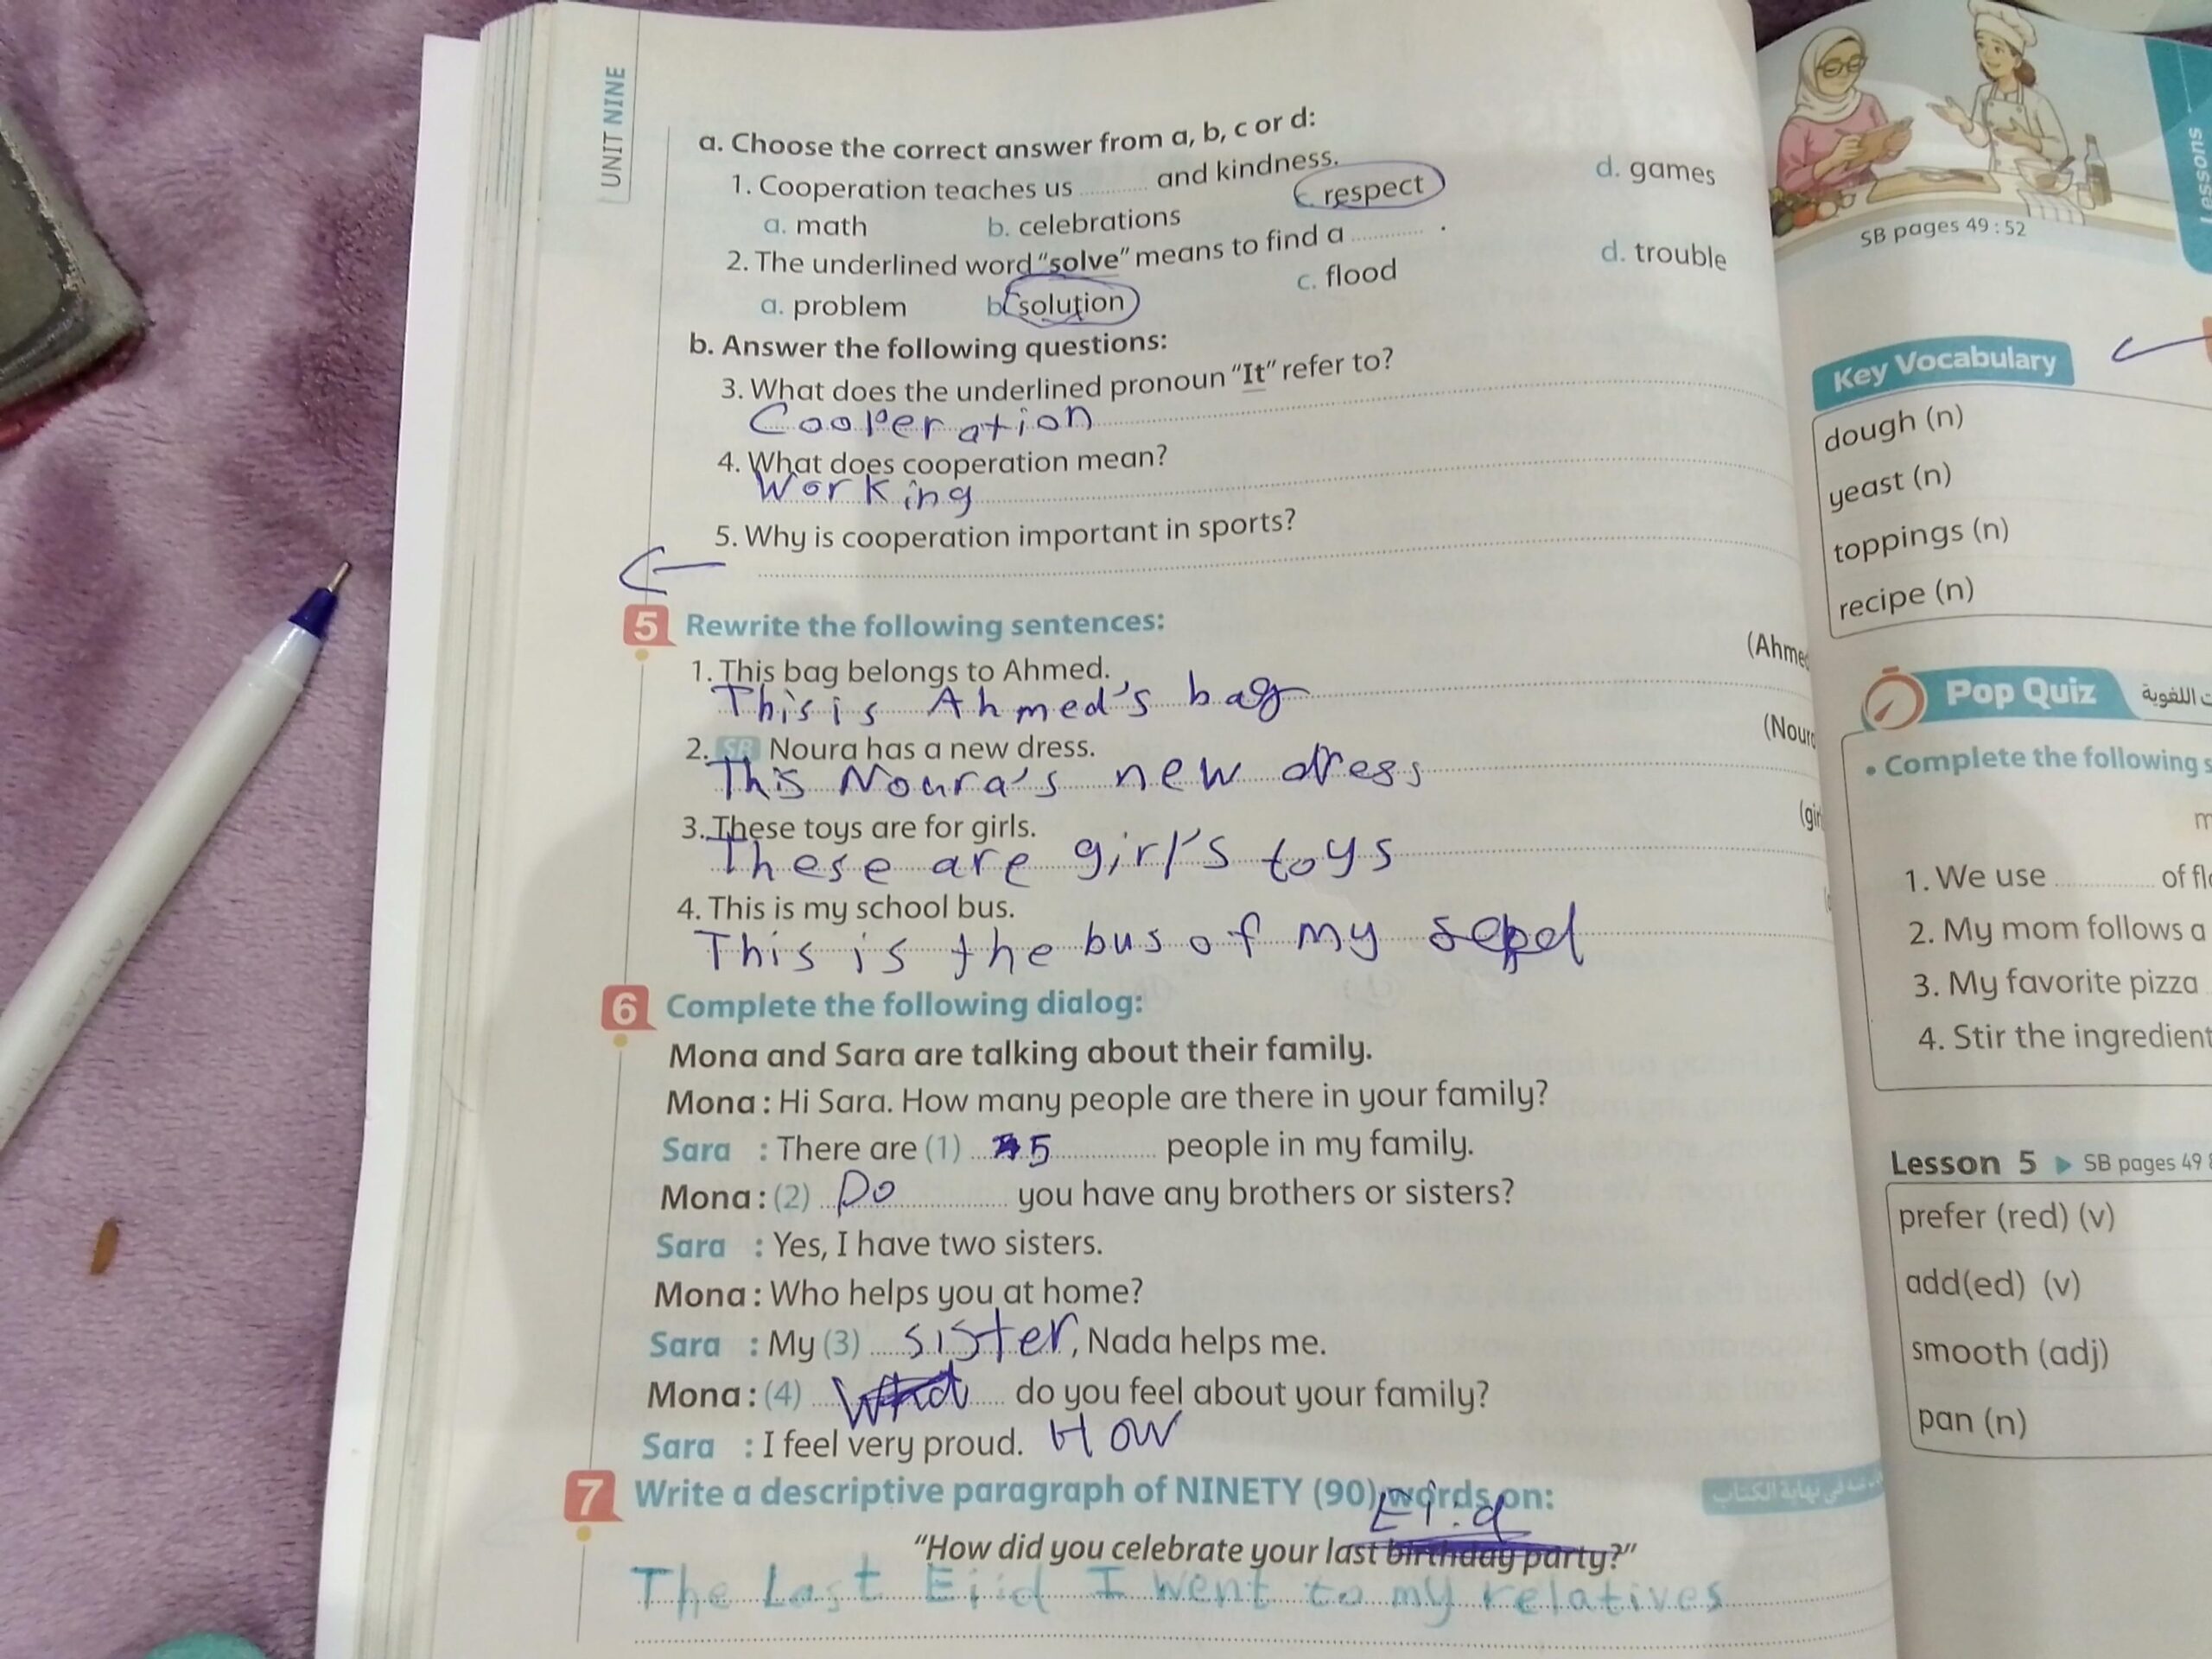 UNIT NINE
a. Choose the correct answer from a, b, c or d:
1. Cooperation teaches us .......... and kindness.
a. math b. celebrations c. respect d. games
2. The underlined word "solve" means to find a .......... .
a. problem b. solution c. flood d. trouble
b. Answer the following questions:
3. What does the underlined pronoun "It" refer to?
Cooperation
4. What does cooperation mean?
Working
5. Why is cooperation important in sports?
5 Rewrite the following sentences:
1. This bag belongs to Ahmed. (Ahmed
This is Ahmed's bag
2. SB Noura has a new dress. (Noura
This Noura's new dress
3. These toys are for girls. (gir
These are girl's toys
4. This is my school bus.
This is the bus of my
6 Complete the following dialog:
Mona and Sara are talking about their family.
Mona : Hi Sara. How many people are there in your family?
Sara : There are (1) 5 people in my family.
Mona : (2) Do you have any brothers or sisters?
Sara : Yes, I have two sisters.
Mona : Who helps you at home?
Sara : My (3) sister, Nada helps me.
Mona : (4) What do you feel about your family?
Sara : I feel very proud. How
7 Write a descriptive paragraph of NINETY (90) words on:
Eid
"How did you celebrate your last birthday party?"
The Last Eid I went to my relatives
Lessons
SB pages 49 : 52
Key Vocabulary
dough (n)
yeast (n)
toppings (n)
recipe (n)
Pop Quiz
• Complete the following s
m
1. We use .......... of flo
2. My mom follows a
3. My favorite pizza
4. Stir the ingredient
Lesson 5 ▶ SB pages 49 &
prefer (red) (v)
add(ed) (v)
smooth (adj)
pan (n)